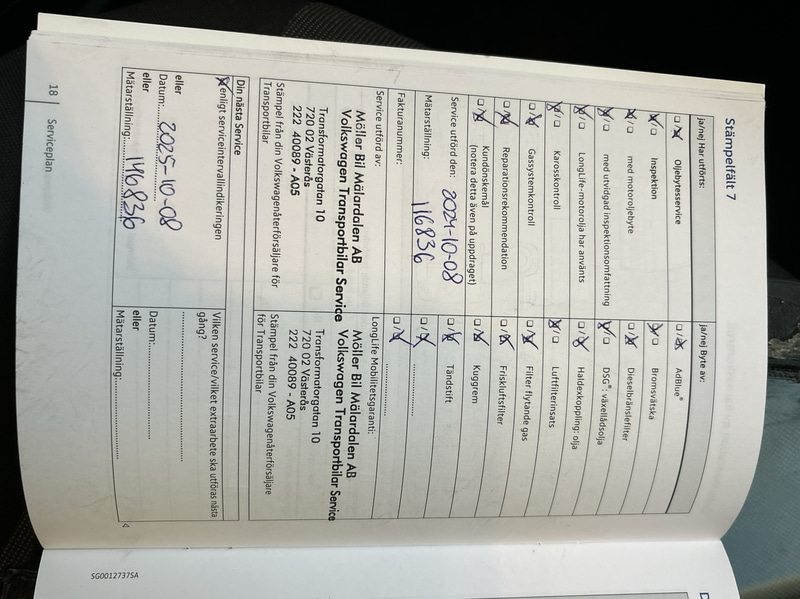 Stämpelfält 7
ja/nej Har utförts:
☐/☒ Oljebytesservice
☒/☐ Inspektion
☒/☐ med motoroljebyte
☒/☐ med utvidgad inspektionsomfattning
☒/☐ LongLife-motorolja har använts
☒/☐ Karosskontroll
☐/☒ Gassystemkontroll
☐/☒ Reparationsrekommendation
☐/☒ Kundönskemål
(notera detta även på uppdraget)
Service utförd den: 2024-10-08
Mätarställning: 116836
Fakturanummer:
Service utförd av:
Möller Bil Mälardalen AB
Volkswagen Transportbilar Service
Transformatorgatan 10
720 02 Västerås
222 40089 - A05
Stämpel från din Volkswagenåterförsäljare för
Transportbilar
ja/nej Byte av:
☐/☒ AdBlue®
☒/☐ Bromsvätska
☐/☒ Dieselbränslefilter
☒/☐ DSG®: växellådsolja
☐/☒ Haldexkoppling: olja
☒/☐ Luftfilterinsats
☐/☒ Filter flytande gas
☐/☒ Friskluftsfilter
☐/☒ Kuggrem
☐/☒ Tändstift
☐/☒ ....................
☐/☒ ....................
LongLife Mobilitetsgaranti:
Möller Bil Mälardalen AB
Volkswagen Transportbilar Service
Transformatorgatan 10
720 02 Västerås
222 40089 - A05
Stämpel från din Volkswagenåterförsäljare
för Transportbilar
Din nästa Service
☒ enligt serviceintervallindikeringen
eller
Datum: 2025-10-08
eller
Mätarställning: 146836
Vilken service/vilket extraarbete ska utföras nästa
gång?
Datum:
eller
Mätarställning:
18 | Serviceplan
SG0012737SA